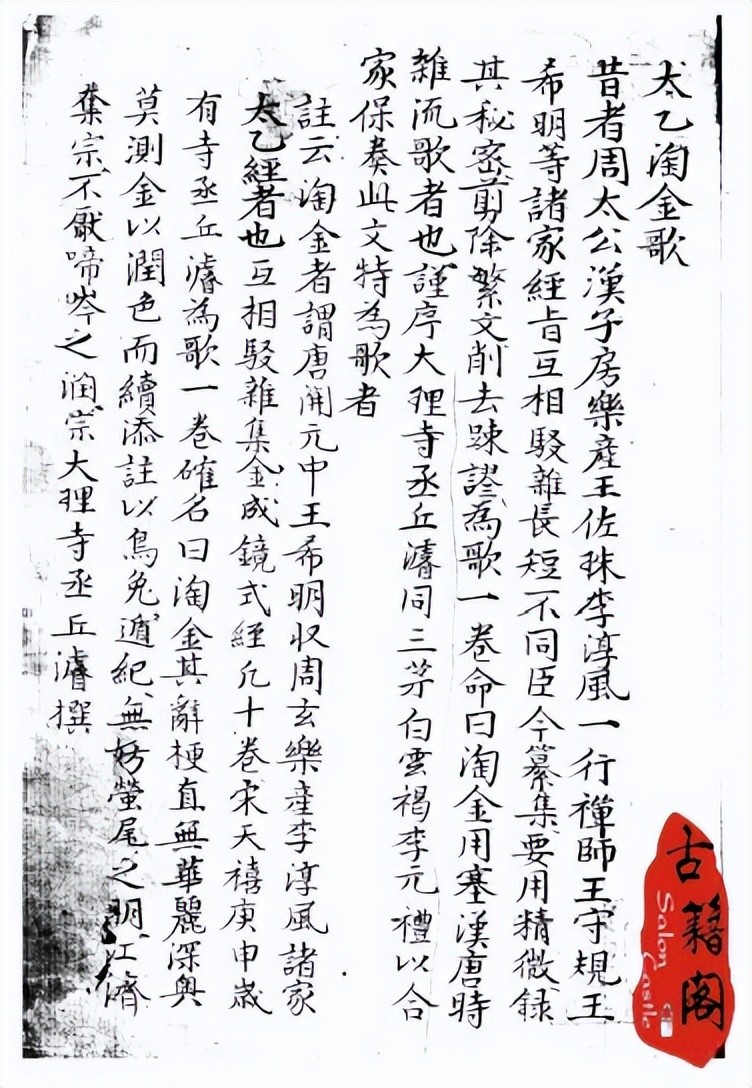 太乙淘金歌
昔者周太公漢子房樂産王佐珠李淳風一行禪師王守規王
希明等諸家經旨互相駁雜長短不同臣今纂集要用精微録
其秘密剪除繁文削去踈謬為歌一卷命曰淘金用塞漢唐時
雜流歌者也謹序大理寺丞丘濬同三茅白雲褐李元禮以合
家保奏此文特為歌者
註云淘金者謂唐開元中王希明收周玄樂産李淳風諸家
太乙經者也互相駁雜集金成鏡式經凢十卷宋天禧庚申歳
有寺丞丘濬為歌一卷確名曰淘金其辭梗直無華麗深奥
莫測金以潤色而續添註以烏兔遁紀無妨螢尾之明江濟
宗不猒啼岑之潤宗大理寺丞丘濬撰
古籍阁
Salon Castle